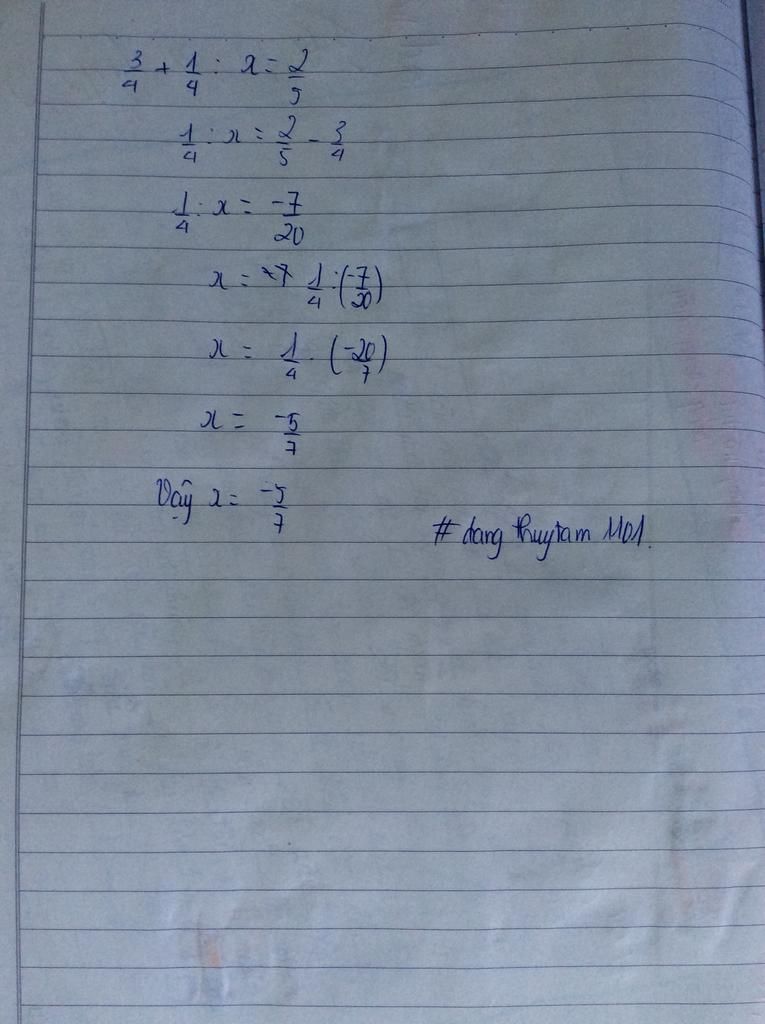 3/4 + 1/4 : x = 2/5
1/4 : x = 2/5 - 3/4
1/4 : x = -7/20
x = 1/4 : (-7/20)
x = 1/4 . (-20/7)
x = -5/7
Vậy x = -5/7
# dang thuytam 1101.